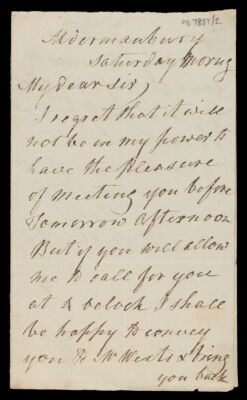 MS 7887/2
Aldermanbury
Saturday Morng
My dear Sir,
I regret that it will
not be in my power to
have the pleasure
of meeting you before
Tomorrow afternoon
But if you will allow
me to call for you
at oclock I shall
be happy to convey
you to Mr Wests & bring
you back